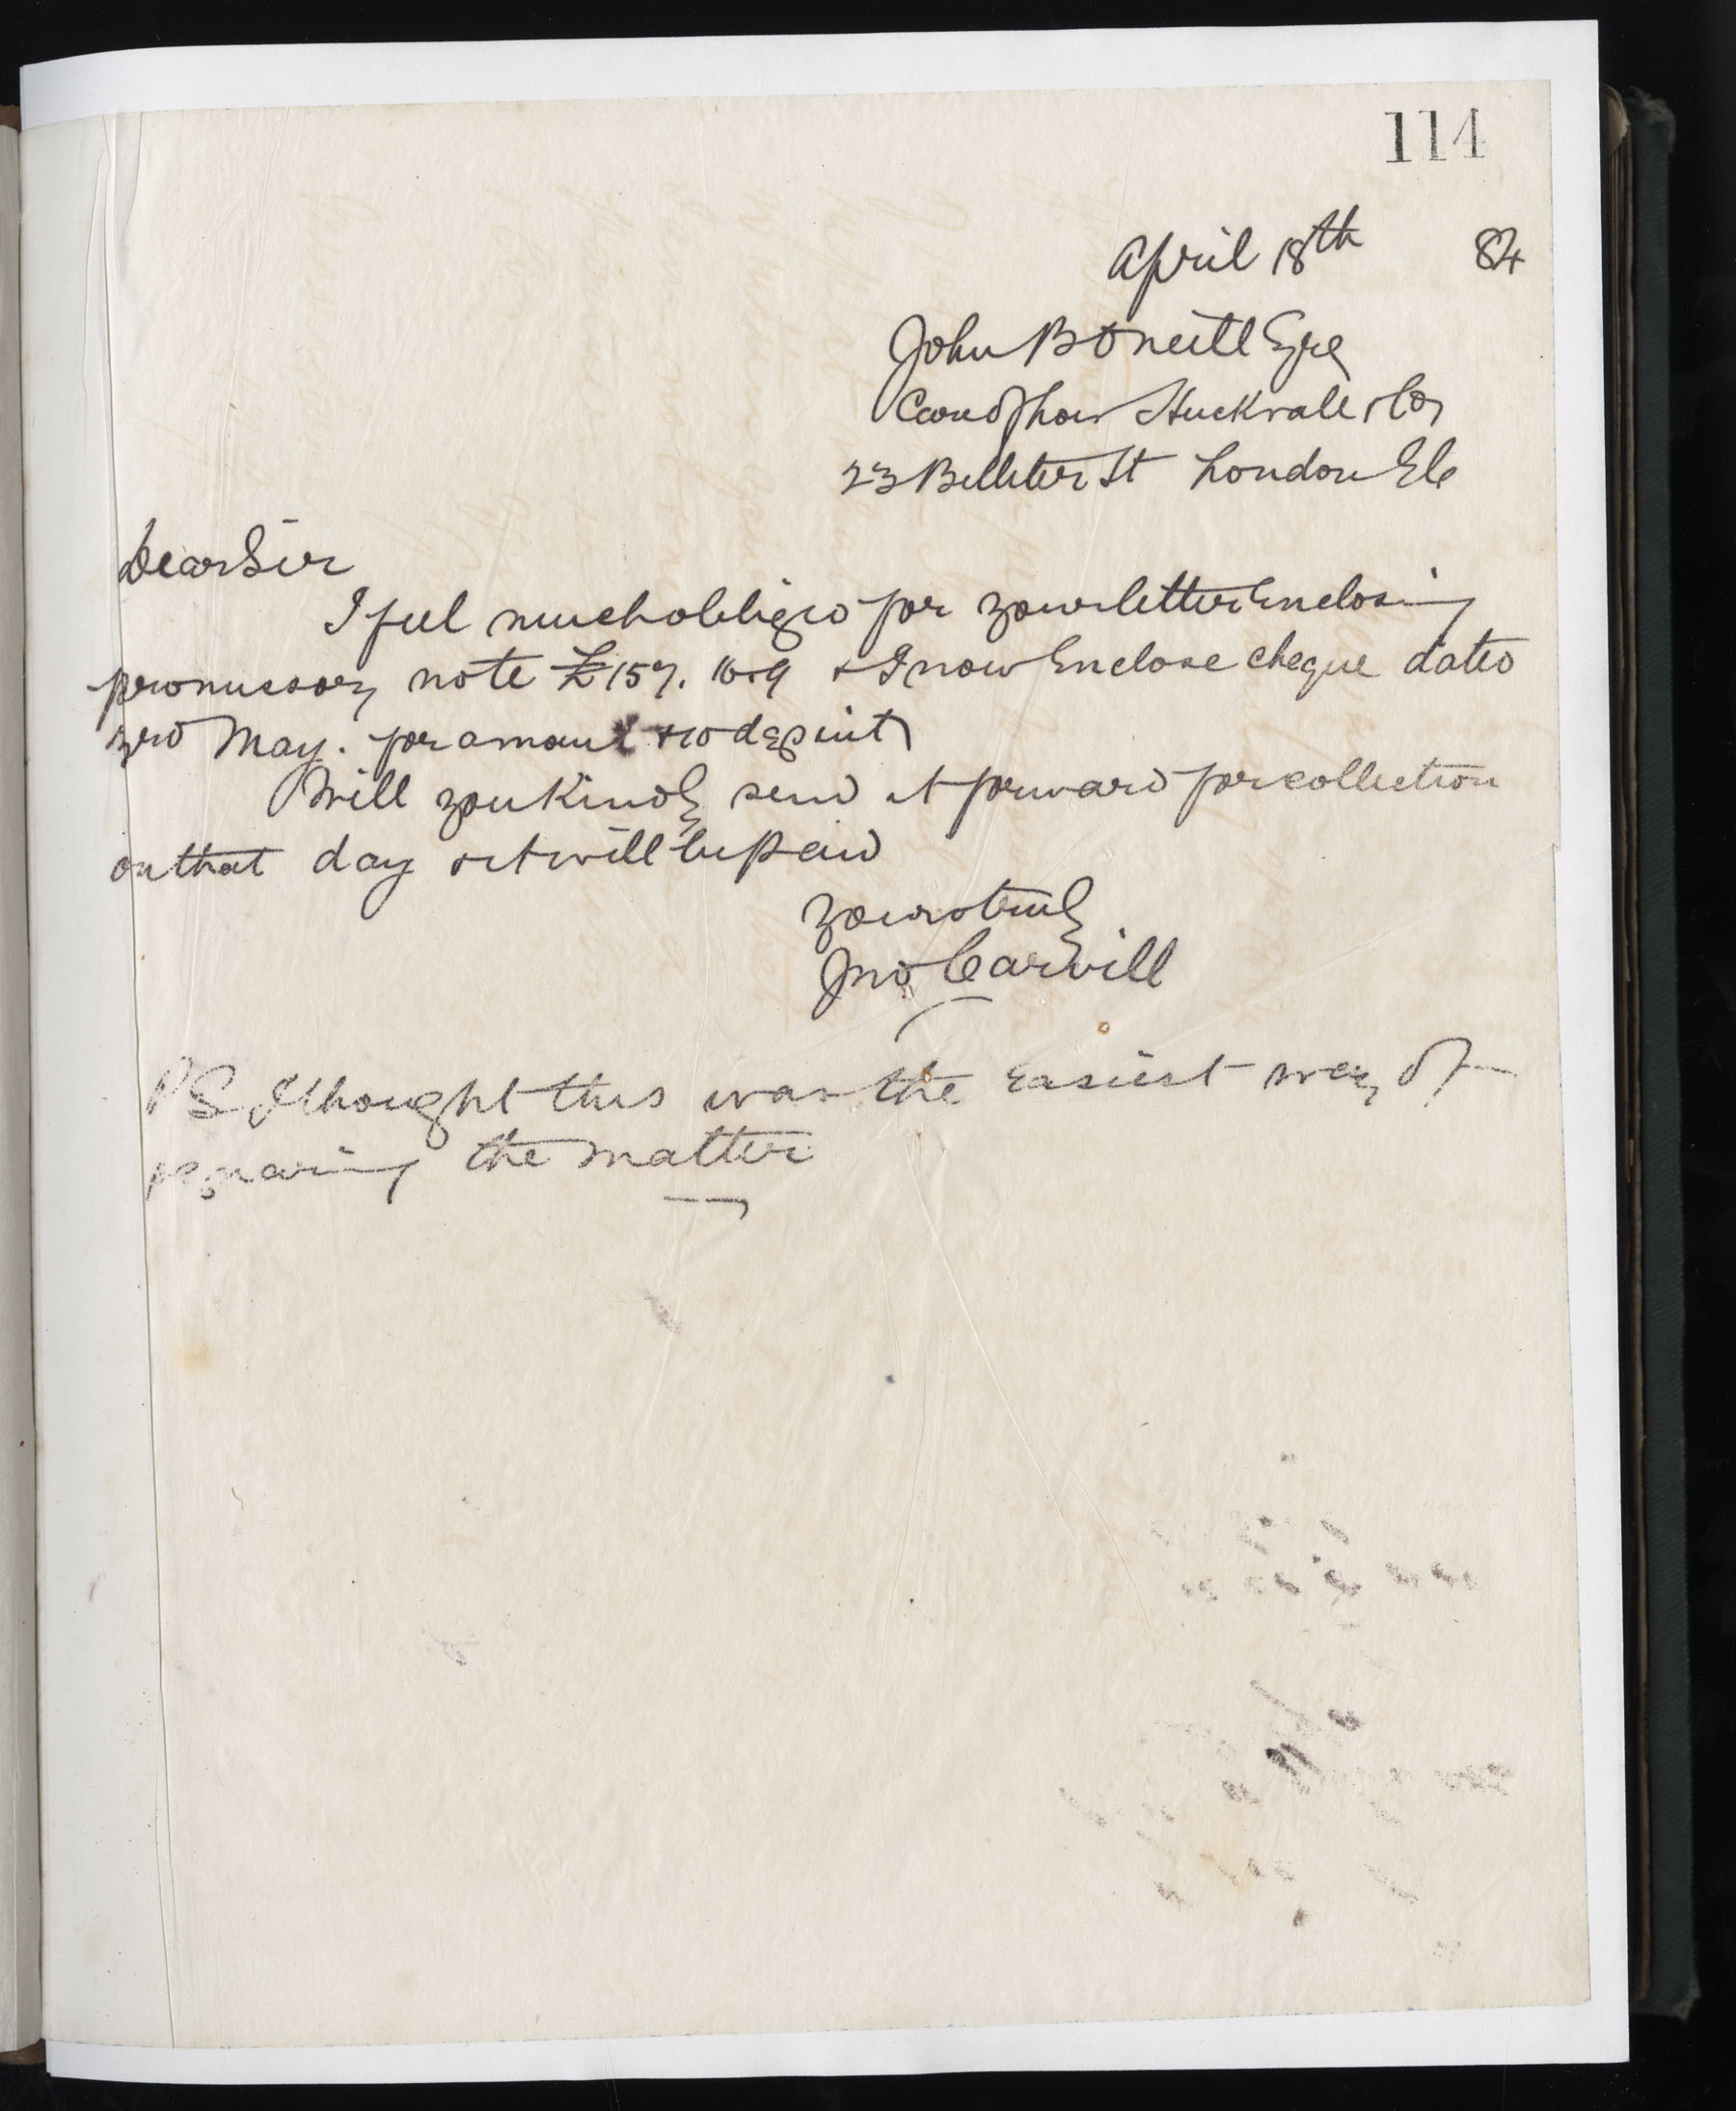 114
April 18th 84
John B O'Neill Esqre
Care of Thos Huckvale & Co
23 Billiter St London EC
Dear Sir
I feel much obliged for your letter Enclosing
promissory note £157. 16.9 & I now Enclose cheque dated
3rd May. for amount
Will you kindly send it forward for collection
on that day & it will be paid
Yours truly
Jno Carvill
PS I thought this was the Easiest way of
squaring the matter